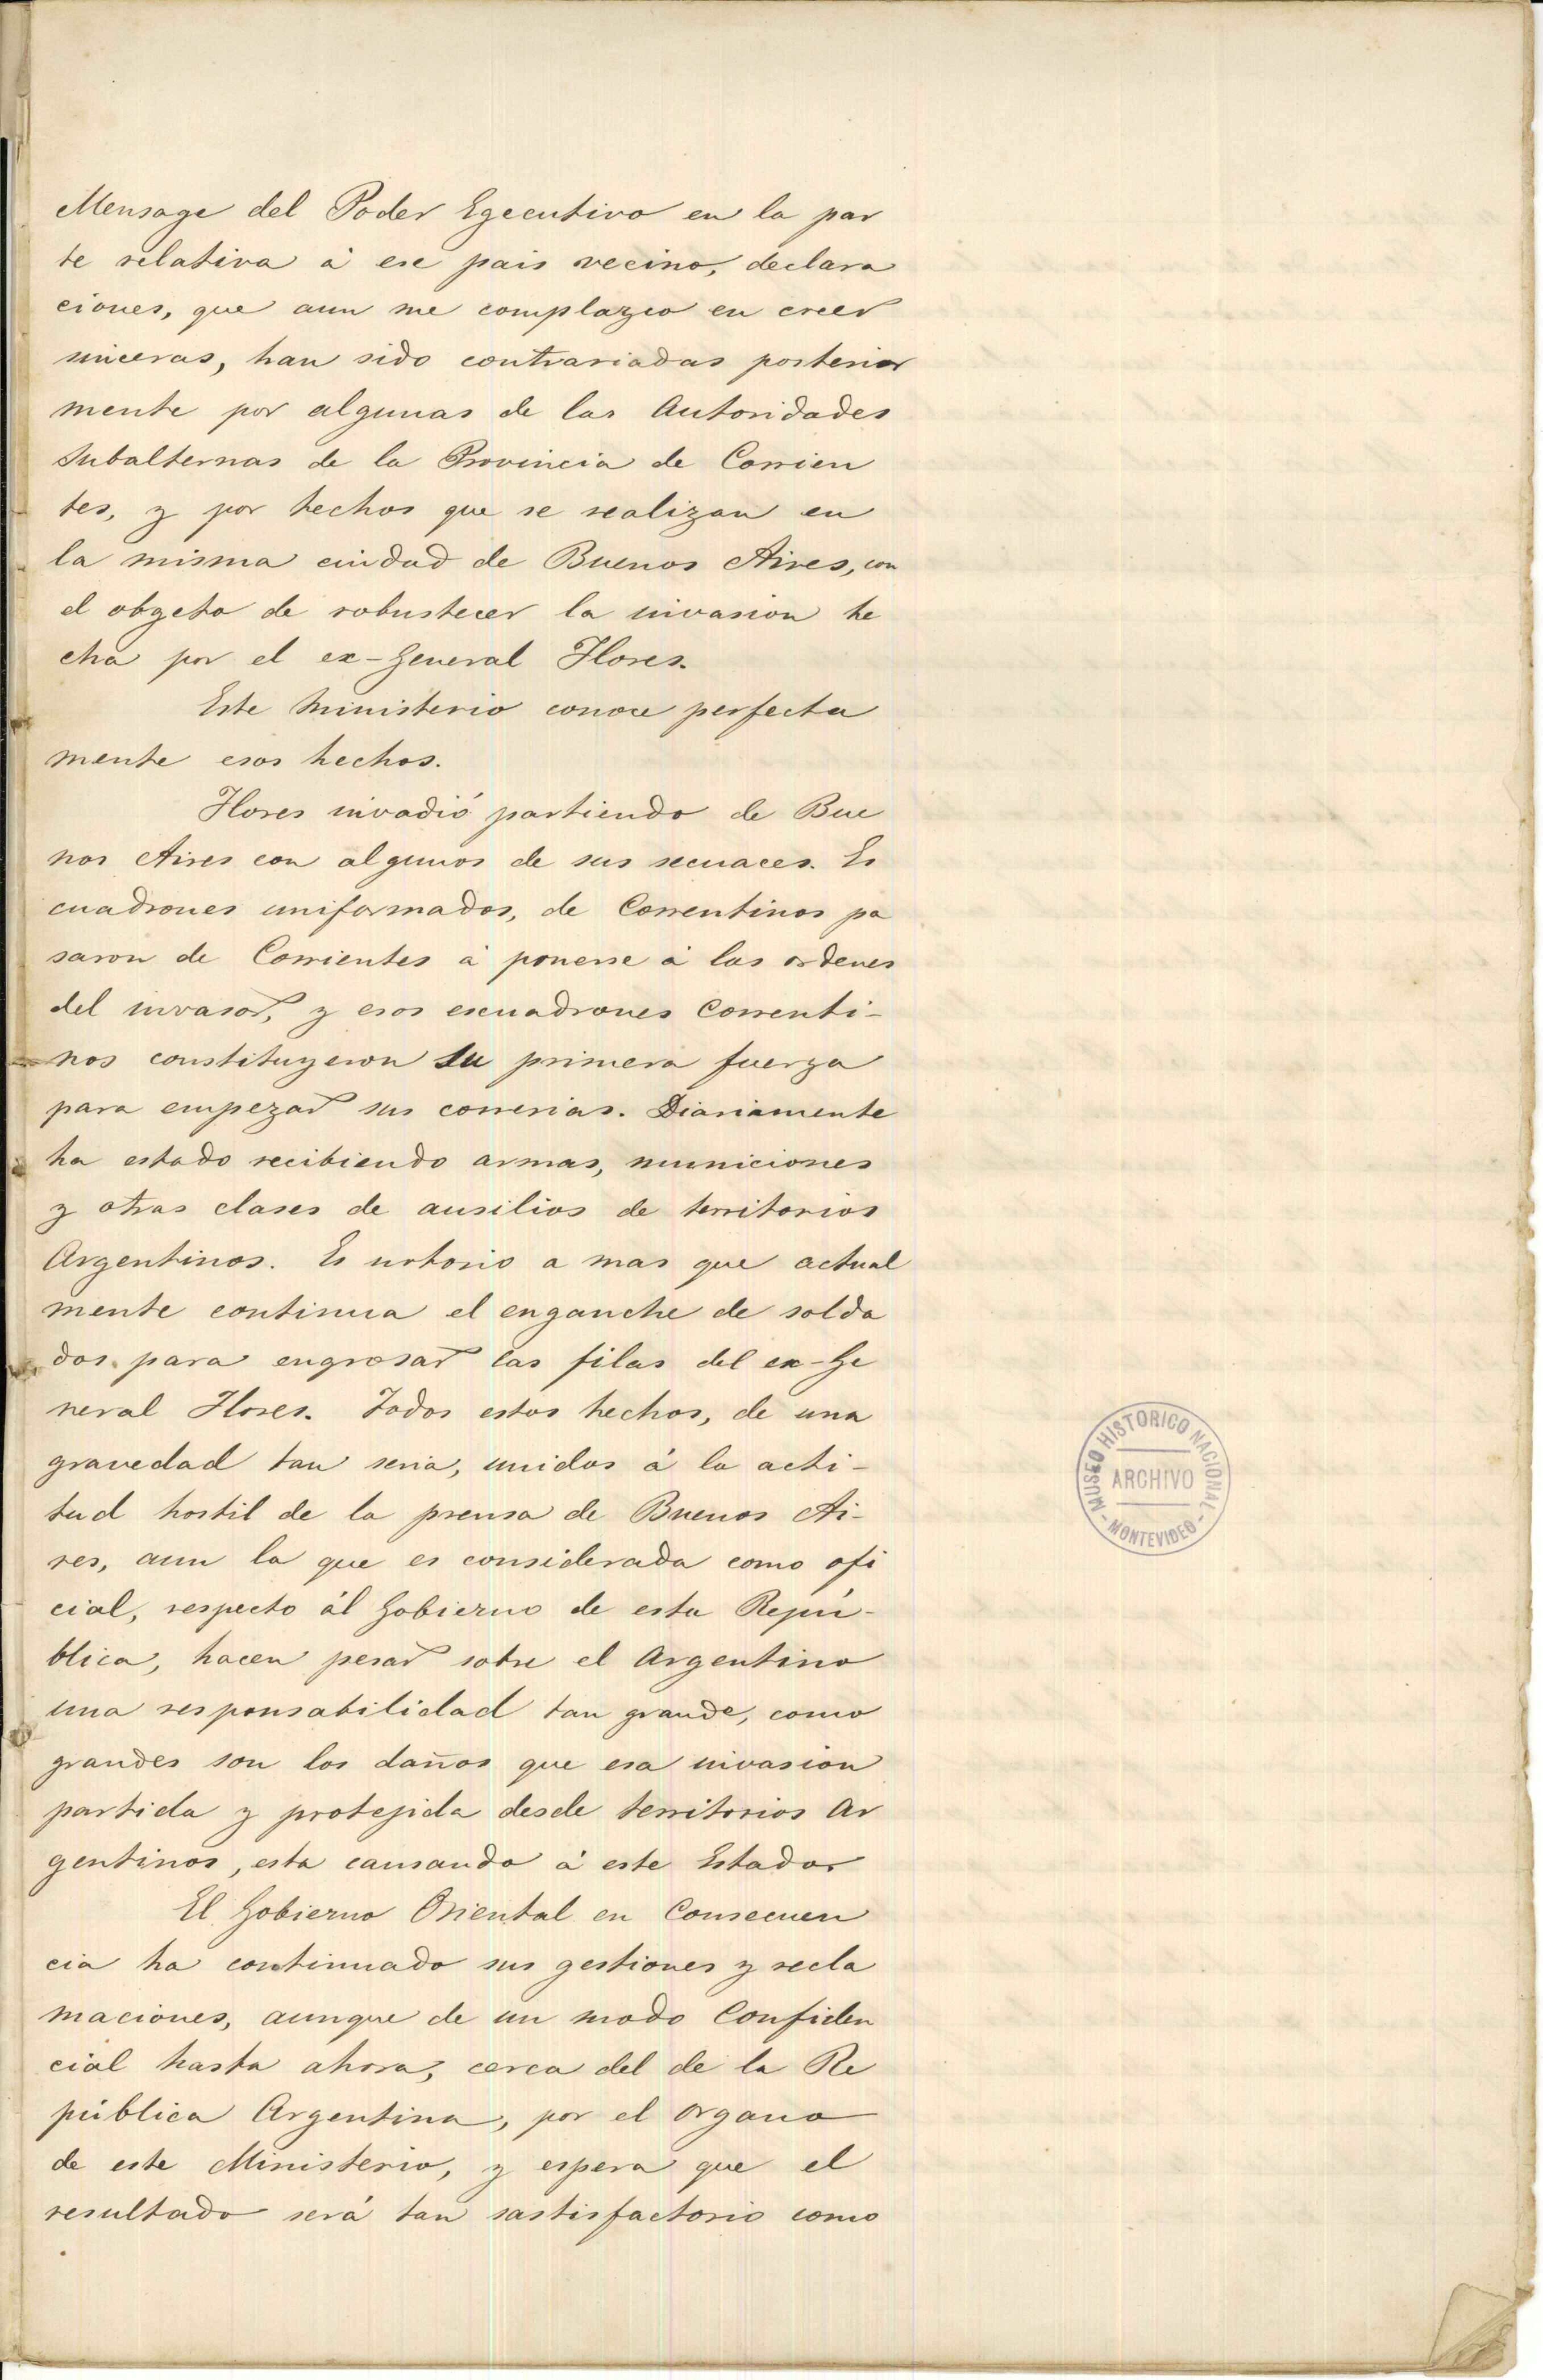 Mensage del Poder Egecutivo en la par
te relativa á ese pais vecino, declara
ciones, que aun me complazco en creer
sinceras, han sido contrariadas posterior
mente por algunas de las Autoridades
Subalternas de la Provincia de Corrien
tes, y por hechos que se realizan en
la misma ciudad de Buenos Aires, con
el obgeto de robustecer la invasion he
cha por el ex-General Flores.
Este Ministerio conoce perfecta
mente esos hechos.
Flores invadió partiendo de Bue
nos Aires con algunos de sus secuaces. Es
cuadrones uniformados, de Correntinos pa
saron de Corrientes á ponerse á las ordenes
del invasor, y esos escuadrones Correnti-
nos constituyeron su primera fuerza
para empezar sus correrias. Diariamente
ha estado recibiendo armas, municiones
y otras clases de ausilios de territorios
Argentinos. Es notorio a mas que actual
mente continua el enganche de solda
dos para engrosar las filas del ex-Ge
neral Flores. Todos estos hechos, de una
gravedad tan seria, unidos á la acti-
tud hostil de la prensa de Buenos Ai-
res, aun la que es considerada como ofi
cial, respecto ál Gobierno de esta Repú-
blica, hacen pesar sobre el Argentino
una responsabilidad tan grande, como
grandes son los daños que esa invasion
partida y protejida desde territorios Ar
gentinos, esta causando á este Estado.
El Gobierno Oriental en Consecuen
cia ha continuado sus gestiones y recla
maciones, aunque de un modo Confiden
cial hasta ahora, cerca del de la Re
pública Argentina, por el organo
de este Ministerio, y espera que el
resultado será tan sastisfactorio como
MUSEO HISTORICO NACIONAL
ARCHIVO
- MONTEVIDEO -